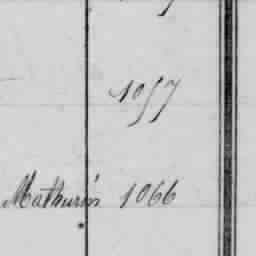 1057
Mathurin 1066